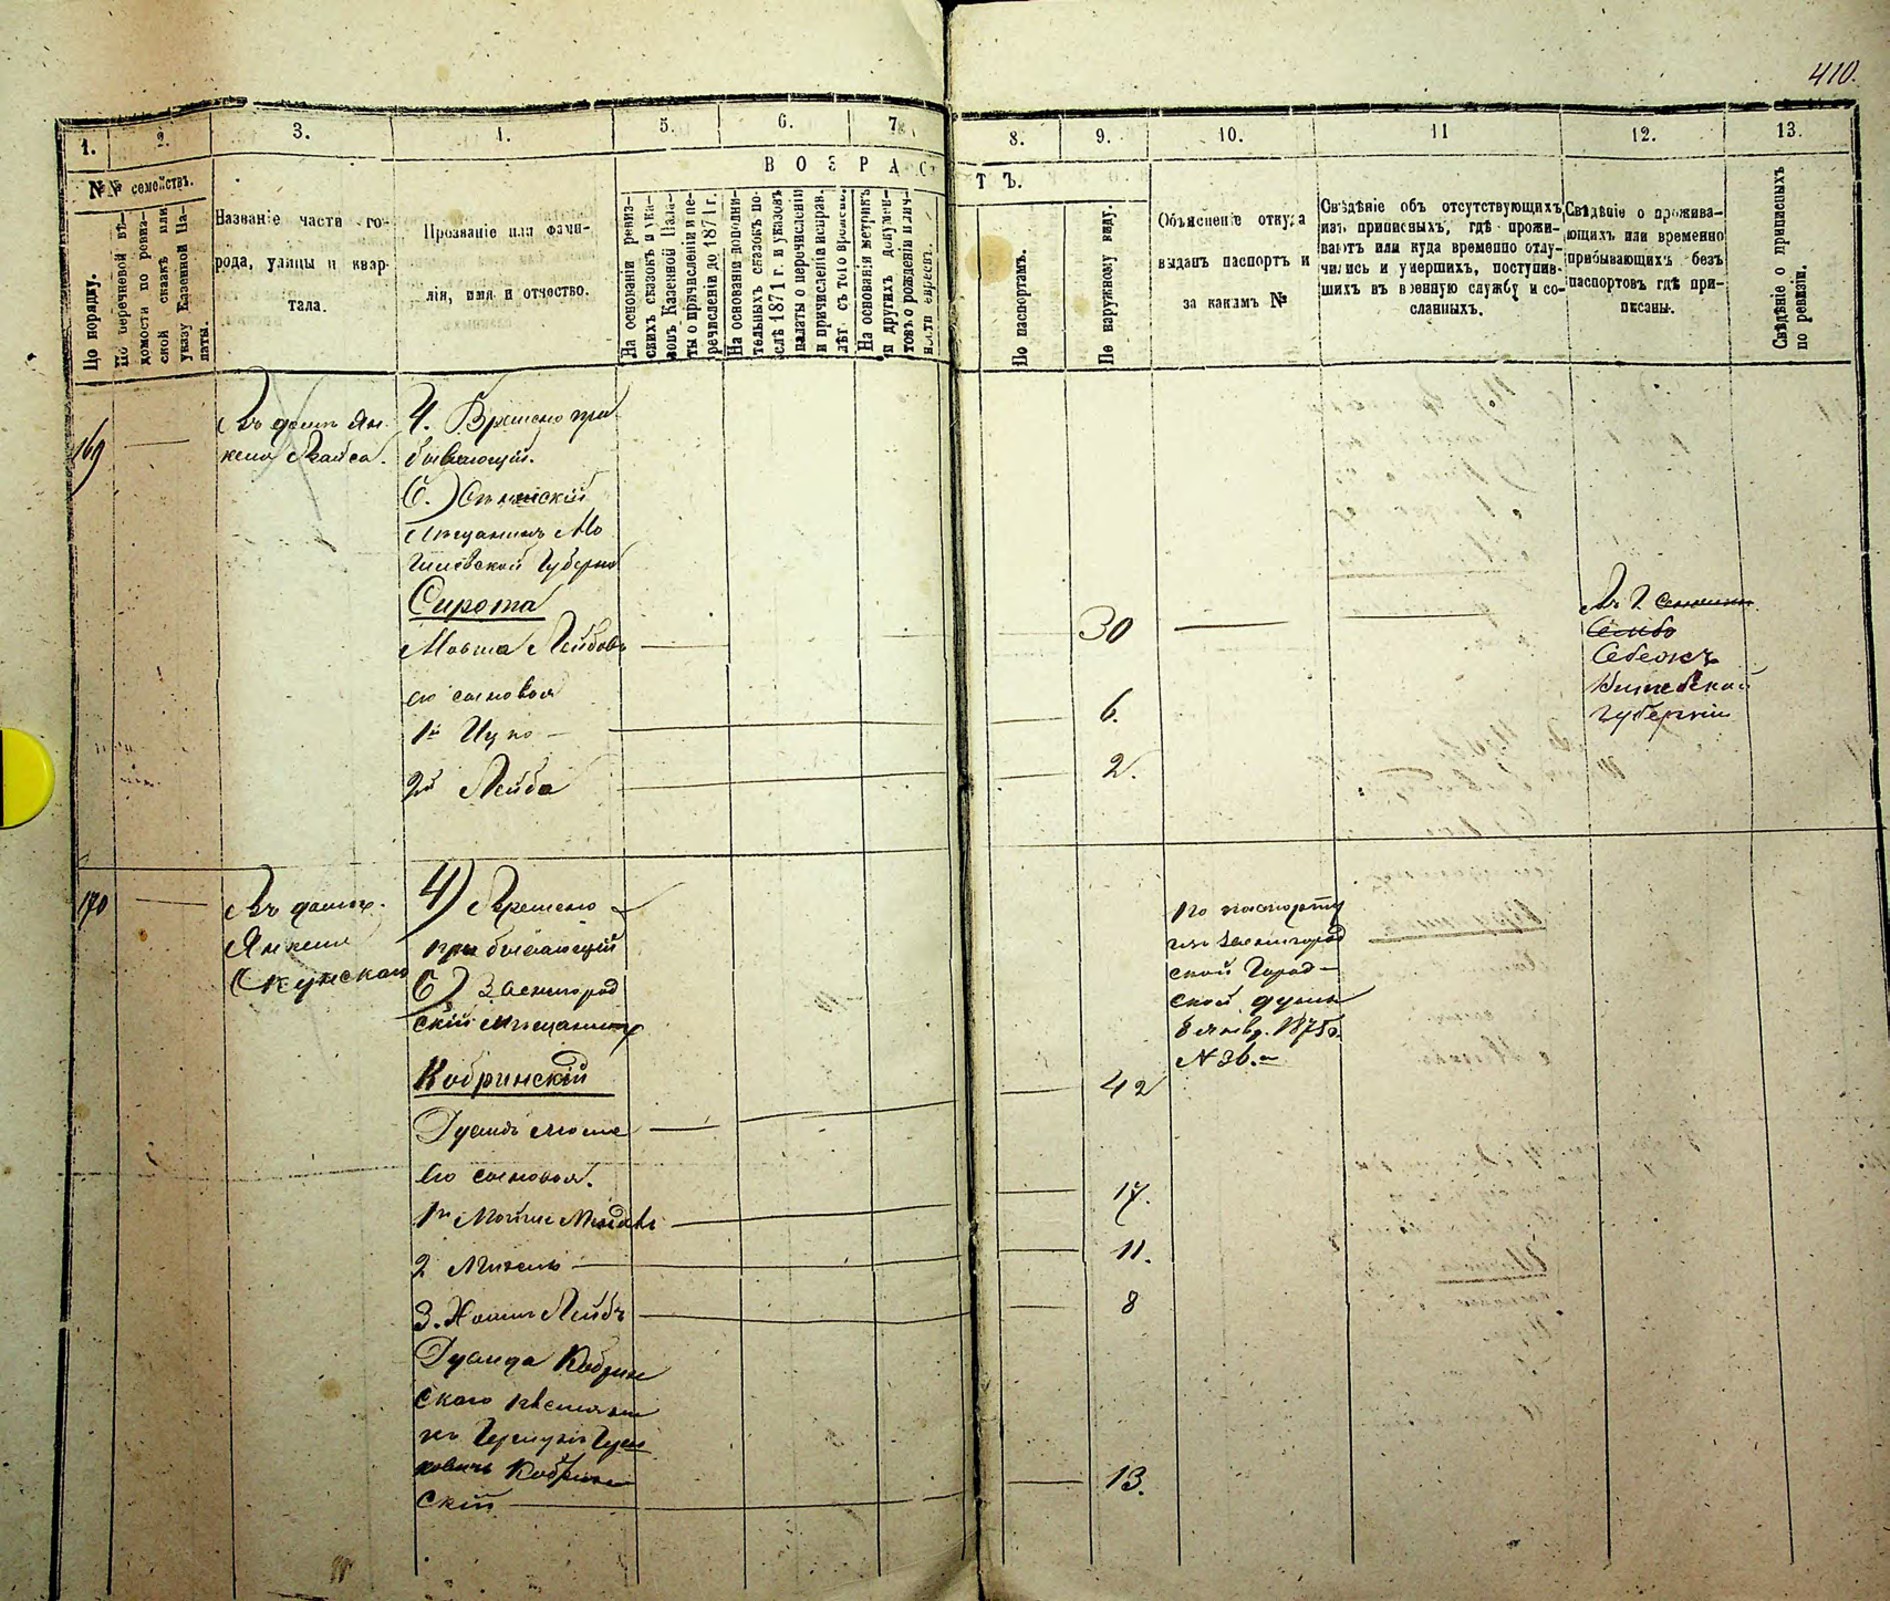 410.
1.
2.
3.
4.
5.
6.
7.
8.
9.
10.
11
12.
13.
№№ семействъ.
По порядку.
По перечневой вѣ-
домости по ревиз-
ской сказкѣ или
указу Казенной Па-
латы.
Названіе части го-
рода, улицы и квар-
тала.
Прозваніе или фами-
лія, имя и отчество.
ВОЗРАСТЪ.
На основаніи ревиз-
скихъ сказокъ и ука-
зовъ Казенной Пала-
ты о причисленіи и пе-
речисленіи до 1871 г.
На основаніи дополни-
тельныхъ сказокъ по-
слѣ 1871 г. и указовъ
палаты о перечисленіи
и причисленіи исправ.
лѣт. съ того времени.
На основаніи метрикъ
и другихъ докумен-
товъ о рожденіи или
По паспортамъ.
По наружному виду.
Объясненіе откуда
выданъ паспортъ и
за какимъ №
Свѣдѣніе объ отсутствующихъ
изъ приписныхъ, гдѣ прожи-
ваютъ или куда временно отлу-
чились и умершихъ, поступив-
шихъ въ военную службу и со-
сланныхъ.
Свѣдѣніе о прожива-
ющихъ или временно
прибывающихъ безъ
паспортовъ гдѣ при-
писаны.
Свѣдѣніе о приписныхъ
по ревизіи.
169
Въ домѣ Ян-
келя
Ч. Времено при
бывающій.
б.)
Мѣщанинъ Мо
гилевской Губерніи
Сирота
Мовша Лейбовъ
30
его сыновья
1й Ицко
6.
2й Лейба
2.
Въ г.
Себежъ
Витебской
губерніи
170
Въ домѣ
Янкеля
Скумскаго
4) Времено
прибывающій
б) Звенигород
скій мѣщанинъ
Кобринскій
42
Дувидъ Мошк
Его сыновья.
1й Мойше Мендель
17.
2 Михель
11.
3. Хаимъ Лейбъ
8
Дувида Кобрин
скаго племянни
къ
Кобрин
скій
13.
по паспорту
изъ Звенигород
ской Город-
ской думы
8 январ. 1875 г.
№ 36.